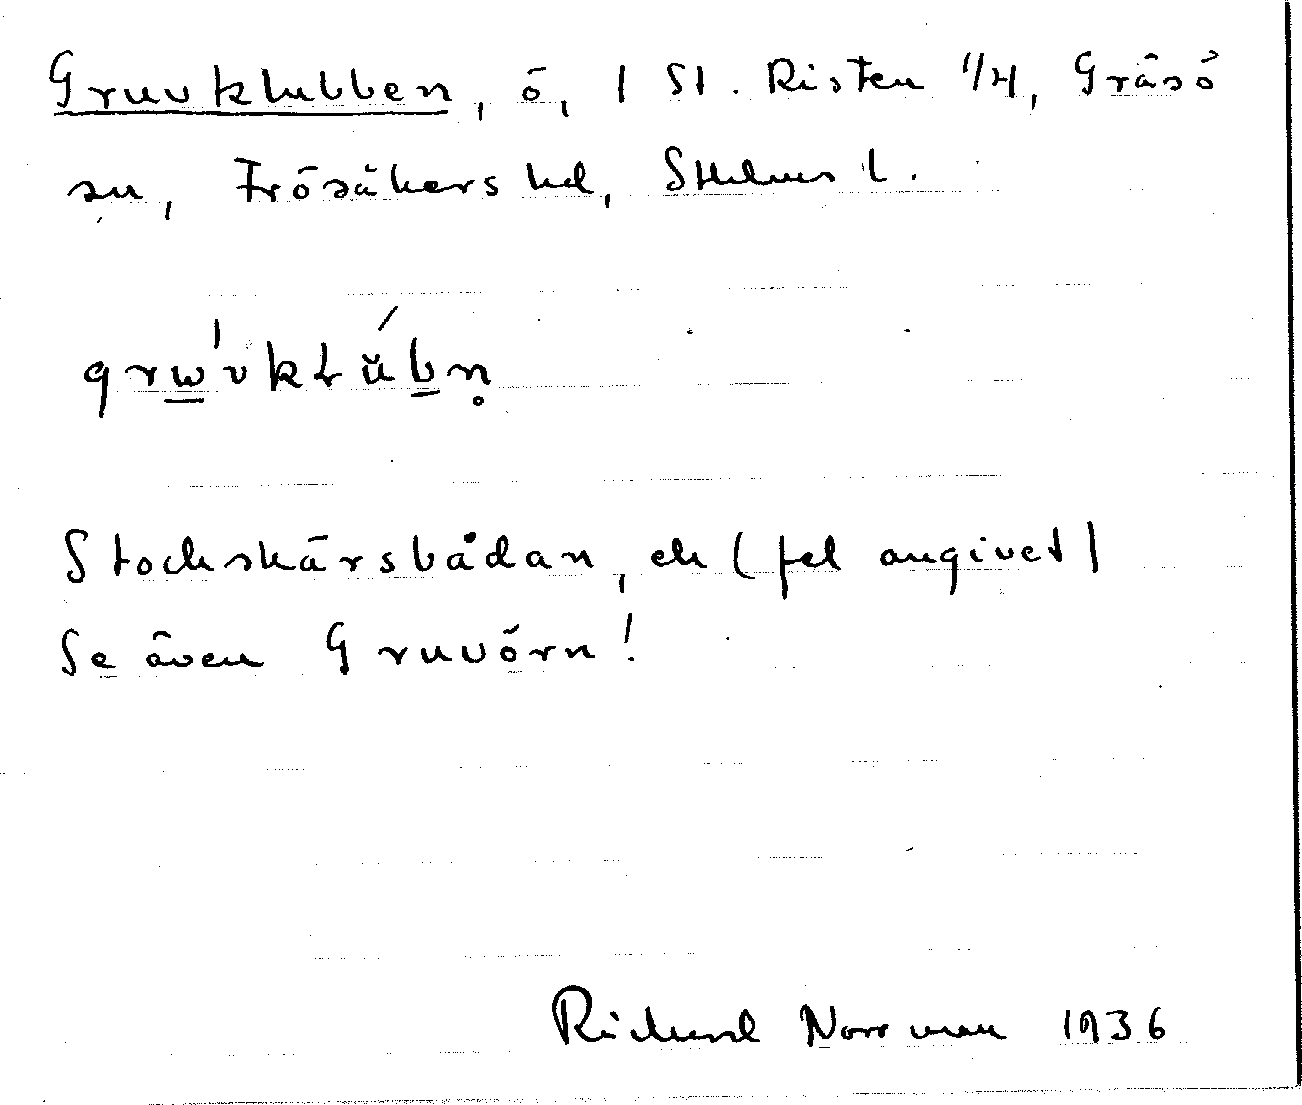 Gruvklubben, ö, 1 St. Risten 1/4, Gräsö
sn, Frösåkers hd, Sthlms l.
grw̲'vkłŭ́b̲n̥
Stockskärsbådan, ek (fel angivet)
Se även Gruvörn!
Richard Norrman 1936